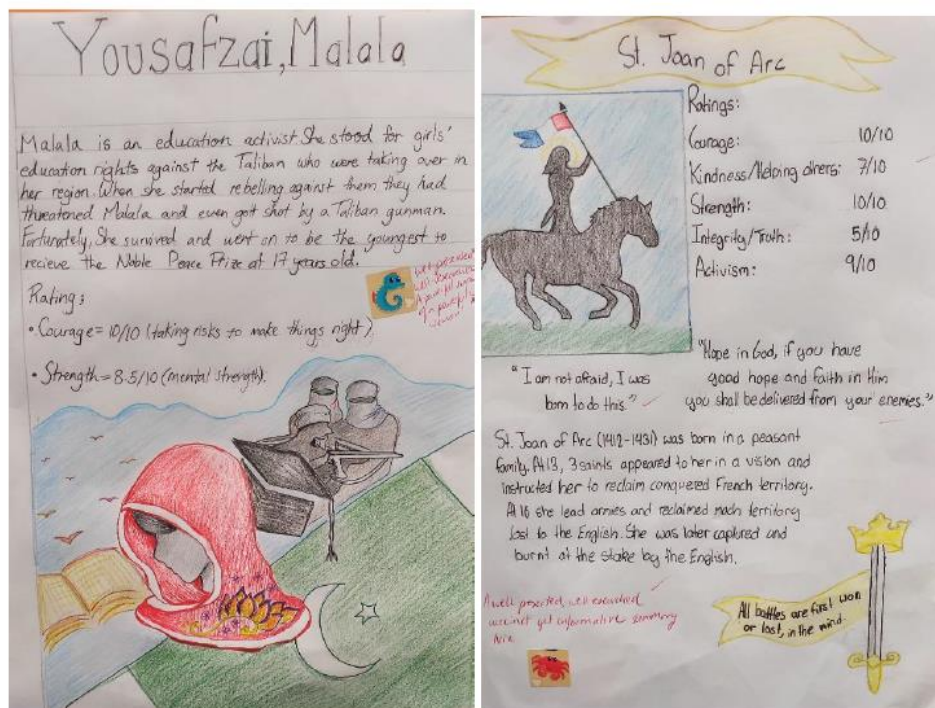 Yousafzai, Malala
Malala is an education activist. She stood for girls'
education rights against the Taliban who were taking over in
her region. When she started rebelling against them they had
threatened Malala and even got shot by a Taliban gunman.
Fortunately, She survived and went on to be the youngest to
recieve the Noble Peace Prize at 17 years old.
Well presented
Rating:
• Courage = 10/10 (taking risks to make things right).
• Strength = 8.5/10 (mental strength).
St. Joan of Arc
Ratings:
Courage: 10/10
Kindness/Helping others: 7/10
Strength: 10/10
Integrity/Truth: 5/10
Activism: 9/10
"I am not afraid, I was
born to do this."
"Hope in God, if you have
good hope and faith in Him
you shall be delivered from your enemies."
St. Joan of Arc (1412-1431) was born in a peasant
family. At 13, 3 saints appeared to her in a vision and
instructed her to reclaim conquered French territory.
At 16 she lead armies and reclaimed much territory
lost to the English. She was later captured and
burnt at the stake by the English.
A well presented, well researched
succinct yet informative summary
All battles are first won
or lost, in the mind.